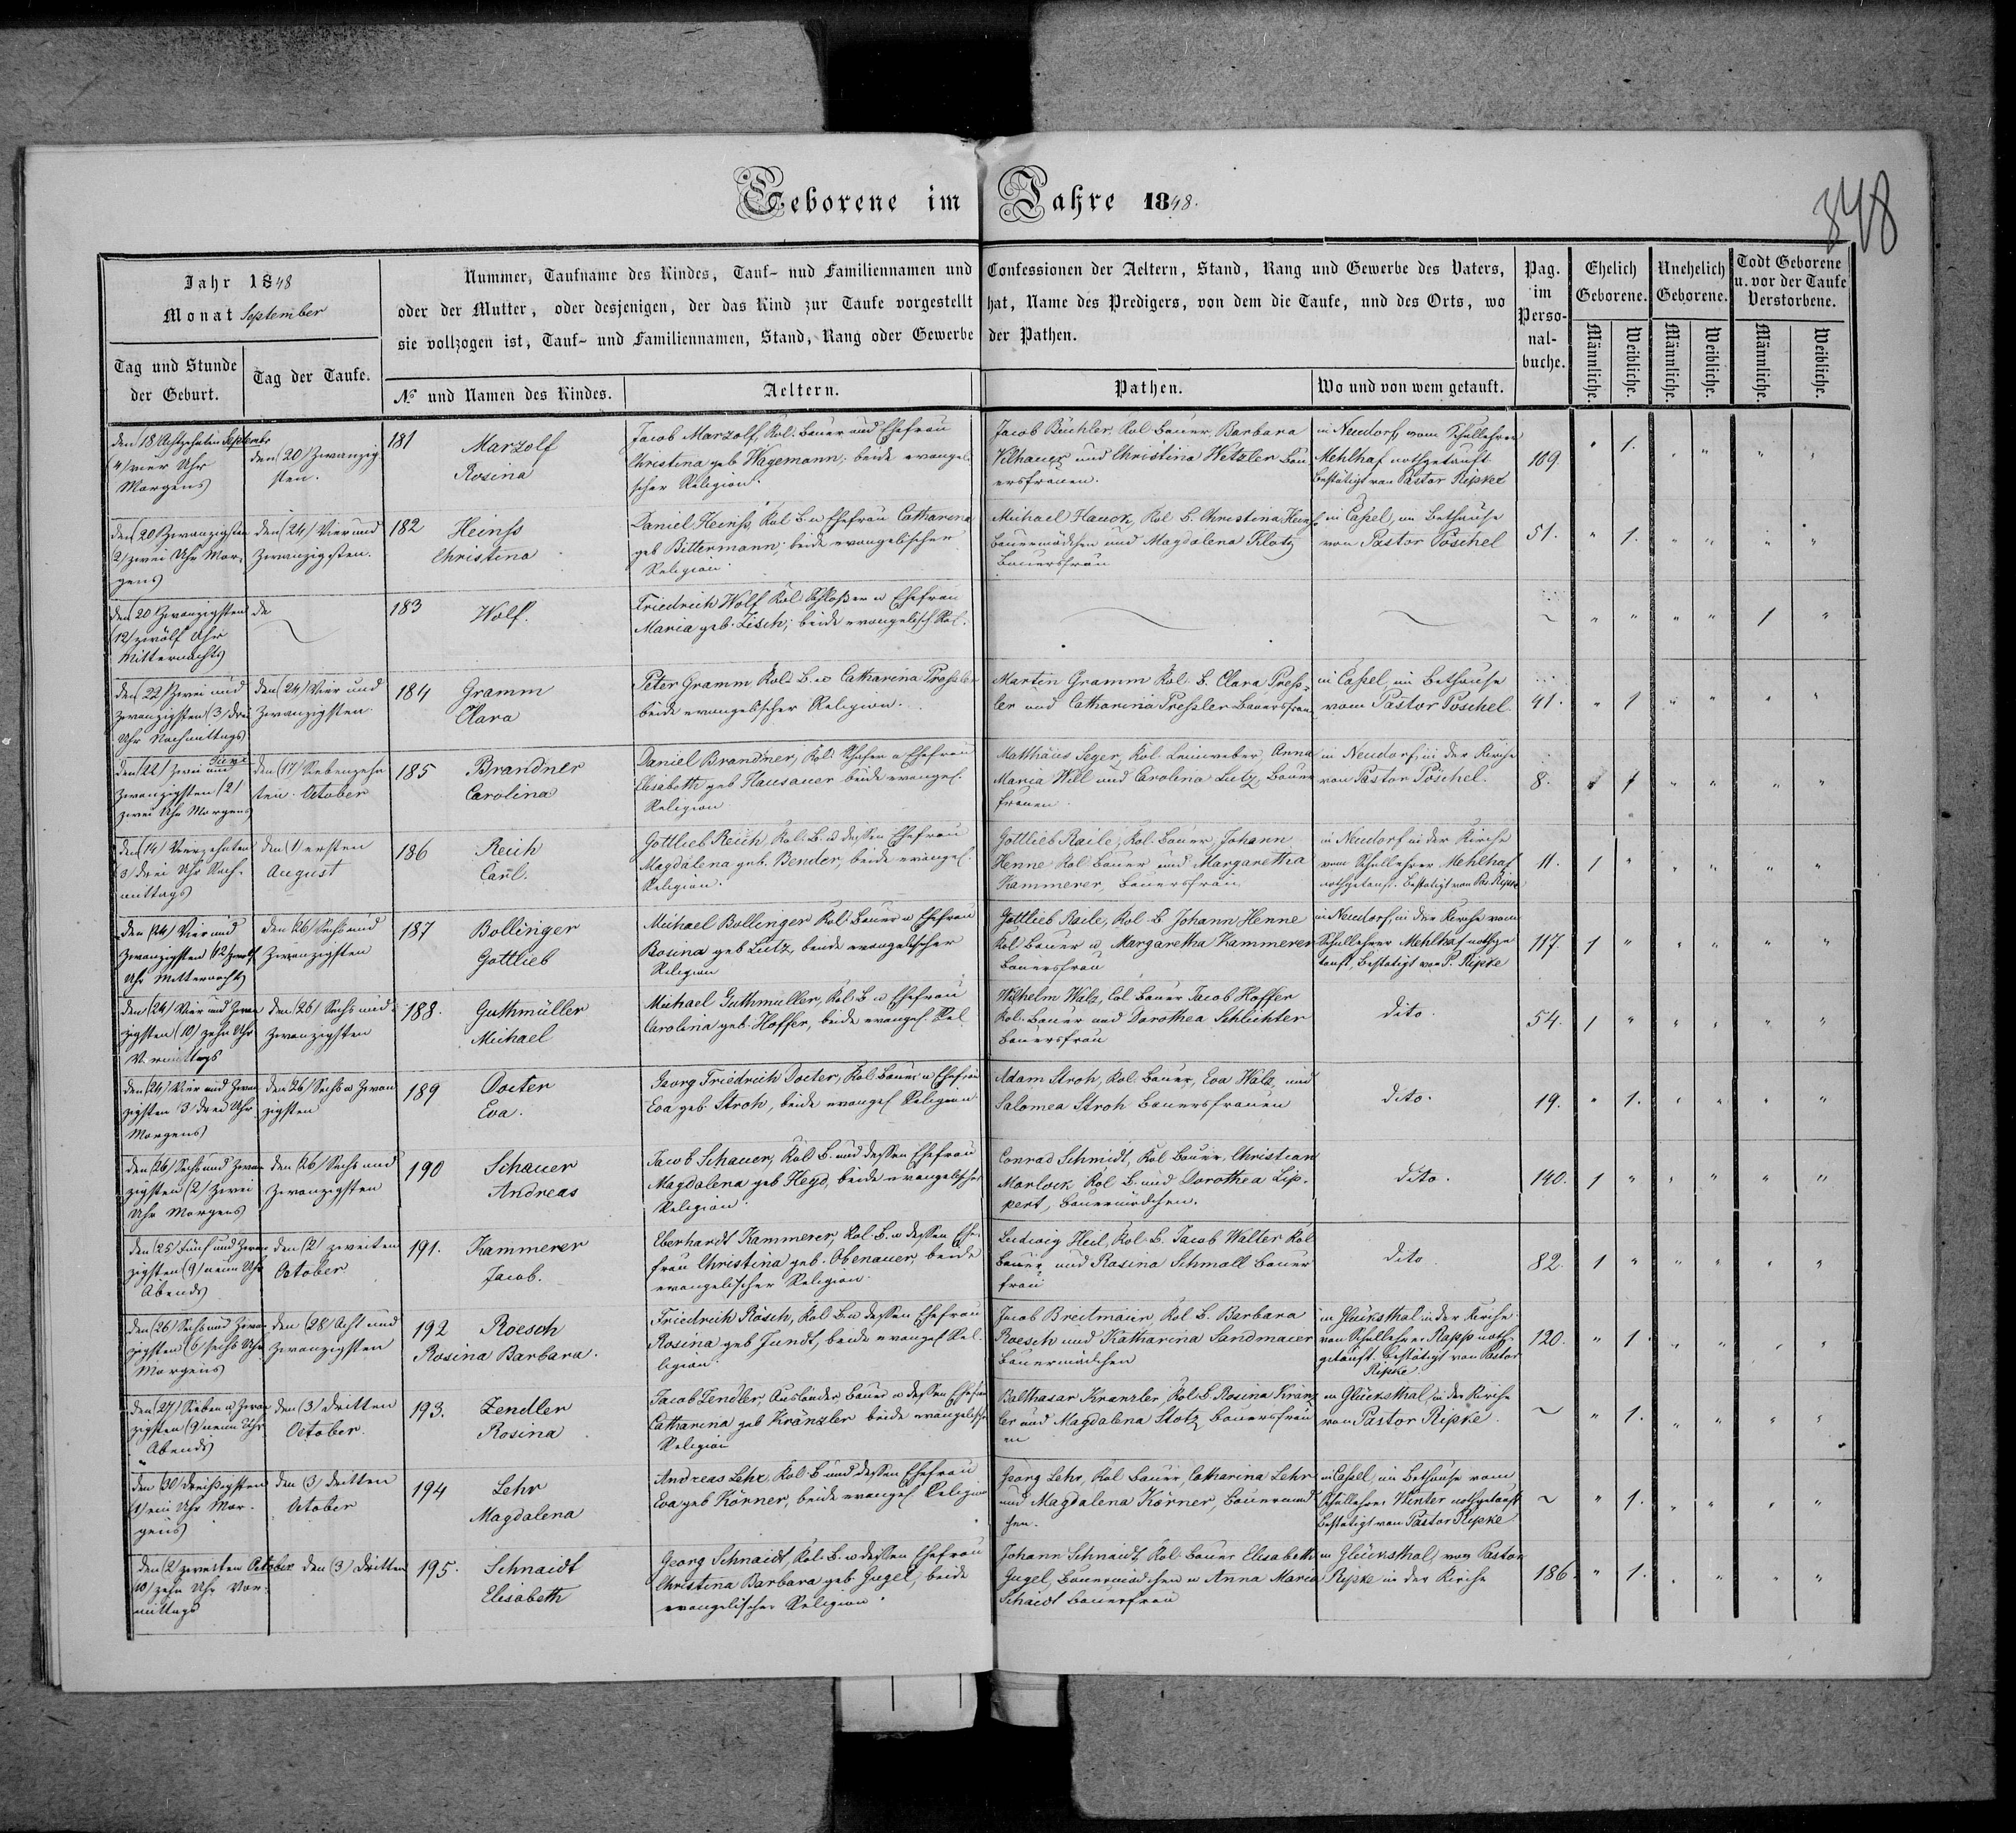 Geborene im Jahre 1848.
348
Jahr 1848
Monat September
Nummer, Taufname des Kindes, Tauf- und Familiennamen und Confessionen der Aeltern, Stand, Rang und Gewerbe des Vaters,
oder der Mutter, oder desjenigen, der das Kind zur Taufe vorgestellt hat, Name des Predigers, von dem die Taufe, und des Orts, wo
sie vollzogen ist, Tauf- und Familiennamen, Stand, Rang oder Gewerbe der Pathen.
Pag. im Perso-nal-buche.
Ehelich Geborene.
Unehelich Geborene.
Todt Geborene u. vor der Taufe Verstorbene.
Männliche. Weibliche. Männliche. Weibliche. Männliche. Weibliche.
Tag und Stunde der Geburt.
Tag der Taufe.
№ und Namen des Kindes.
Aeltern.
Pathen.
Wo und von wem getauft.
den (18) Achtzehnten Septembr
(4) vier Uhr
Morgens
den (20) Zwanzig
sten.
181 Marzolf
Rosina
Jacob Marzolf, Kol. Bauer und Ehefrau
Christina geb. Wagemann; beide evangeli
scher Religion.
Jacob Büchler, Kol Bauer, Barbara
Vilhauer und Christina Wetzler Bau
ersfrauen.
in Neudorf, vom Schullehrer
Mehlhaf nothgetauft
bestätigt von Pastor Ripke
109. " 1. " " " "
den (20) Zwanzigsten
(2) zwei Uhr Mor-
gens
den (24) Vier und
Zwanzigsten.
182 Heinss
Christina
Daniel Heinss, Kol B. u Ehefrau Catharina
geb Bittermann; beide evangelischer
Religion.
Michael Hauck, Kol B. Christina Heinss
Bauermädchen und Magdalena Klotz
Bauersfrau
in Cassel, im Bethause
von Pastor Pöschel
51. " 1. " " " "
den (20) Zwanzigsten
(12) zwölf Uhr
Mitternachts
183 Wolf.
Friedrich Wolf Kol. Schlosser u Ehefrau
Maria geb. Zisch; beide evangelisch Rel.
~ " " " " 1 "
den (22) Zwei und
Zwanzigsten (3) drei
Uhr Nachmittags
den (24) Vier und
Zwanzigsten
184 Gramm
Clara
Peter Gramm, Kol. B. u Catharina Pressler
beide evangelischer Religion.
Martin Gramm Kol. B. Clara Press-
ler und Catharina Pressler Bauersfrau
in Cassel, im Bethause
vom Pastor Pöschel
41. " 1 " " " "
den (22) Zwei und
Zwanzigsten (2)
zwei Uhr Morgens
den (17) Siebenzehn
ten October
185 Brandner
Carolina
Daniel Brandner, Kol. Schäfer u Ehefrau
Elisabeth geb Hausauer beide evangel.
Religion
Matthäus Seger, Kol. Leinweber, Anna
Maria Will und Carolina Lutz, Bauer
frauen.
in Neudorf, in der Kirche
von Pastor Pöschel.
8. 1 " " " "
den (14) Vierzehnten
(3) drei Uhr Nach-
mittags
den (1) ersten
August
186 Reich
Carl.
Gottlieb Reich, Kol. B. u dessen Ehefrau
Magdalena geb. Bender, beide evangel.
Religion.
Gottlieb Raile, Kol. Bauer, Johann
Henne Kol Bauer und Margaretha
Kammerer, Bauersfrau
in Neudorf in der Kirche
vom Schullehrer Mehlhaf
nothgetauft. bestätigt von Pas. Ripke
11. 1 " " " " "
den (24) Vier und
Zwanzigsten (12) zwölf
Uhr Mitternachts
den (26) Sechs und
Zwanzigsten
187 Bollinger
Gottlieb
Michael Bollinger Kol. Bauer u Ehefrau
Rosina geb Lutz, beide evangelischer
Religion
Gottlieb Raile, Kol. B Johann Henne
Kol Bauer u. Margaretha Kammerer
Bauersfrau
in Neudorf, in der Kirche vom
Schullehrer Mehlhaf nothge
tauft, bestätigt von P. Ripke
117. 1 " " " " "
den (24) Vier und Zwan
zigsten (10) zehn Uhr
Vormittags
den (26) Sechs und
Zwanzigsten
188. Guthmüller
Michael
Michael Guthmüller, Kol. B u Ehefrau
Carolina geb. Hoffer, beide evangel. Rel
Wilhelm Walz, Col Bauer Jacob Hoffer
Kol. Bauer und Dorothea Schlichter
Bauersfrau
dito.
54. 1 " " " " "
den (24) Vier und Zwan
zigsten 3) drei Uhr
Morgens
den (26) Sechs u Zwan
zigsten
189 Docter
Eva.
Georg Friedrich Docter, Kol Bauer u Ehefrau
Eva geb. Stroh, beide evangel Religion
Adam Stroh, Kol Bauer, Eva Walz, und
Salomea Stroh Bauersfrauen
dito.
19. " 1. " " " "
den (26) Sechs und Zwan
zigsten (2) zwei
Uhr Morgens
den (26) Sechs und
Zwanzigsten
190 Schauer
Andreas
Jacob Schauer, Kol B. und dessen Ehefrau
Magdalena geb Heyd, beide evangelischer
Religion
Conrad Schmidt, Kol Bauer, Christian
Marlock Kol B. und Dorothea Lip-
pert, Bauermädchen.
dito.
140. 1 " " " " "
den (25) Fünf und Zwan
zigsten (9) neun Uhr
Abends
den (2) zweiten
October
191. Kammerer
Jacob.
Eberhardt Kammerer, Kol. B. u dessen Ehe-
frau Christina geb. Obenauer, beide
evangelischer Religion.
Ludwig Heil, Kol. B. Jacob Walter Kol
Bauer und Rosina Schmoll Bauer
frau
dito
82. 1 " " " " "
den (26) Sechs und Zwan
zigsten (6) sechs Uhr
Morgens
den (28) Acht und
Zwanzigsten
192 Roesch
Rosina Barbara.
Friedrich Rösch, Kol B. u dessen Ehefrau
Rosina geb Jundt, beide evangel Re-
ligion.
Jacob Breitmaier, Kol B. Barbara
Roesch und Katharina Sandmaier
Bauermädchen
in Glücksthal in der Kirche
von Schullehrer Rapp noth-
getauft. bestätigt von Pastor
Ripke.
120. " 1. " " " "
den (27) Sieben u Zwan
zigsten (9) neun Uhr
Abends
den (3) dritten
October.
193. Zendler
Rosina
Jacob Zendler, Ausländer, Bauer u dessen Ehefrau
Catharina geb Kränzler beide evangelischer
Religion
Balthasar Kranzler, Kol. B Rosina Kränz
ler und Magdalena Stotz Bauersfrau
en
in Glücksthal, in der Kirche
von Pastor Ripke.
~ " 1. " " " "
den (30) dreissigsten
(1) ein Uhr Mor-
gens
den (3) dritten
October
194 Lehr
Magdalena
Andreas Lehr, Kol. B und dessen Ehefrau
Eva geb Körner, beide evangel Religion
Georg Lehr, Kol Bauer, Catharina Lehr
und Magdalena Körner, Bauermäd
chen.
in Cassel, im Bethause vom
Schullehrer Winter nothgetauft
bestätigt von Pastor Ripke
~ " 1. " " " "
den (2) zweiten October
(10) zehn Uhr Vor-
mittags
den (3) dritten
195. Schnaidt
Elisabeth
Georg Schnaidt, Kol. B. u dessen Ehefrau
Christina Barbara geb. Gugel, beide
evangelischer Religion.
Johann Schnaidt Kol. Bauer Elisabeth
Gugel, Bauermädchen u Anna Maria
Schaidt Bauersfrau
in Glücksthal, von Pastor
Ripke in der Kirche
186. " 1. " " " "